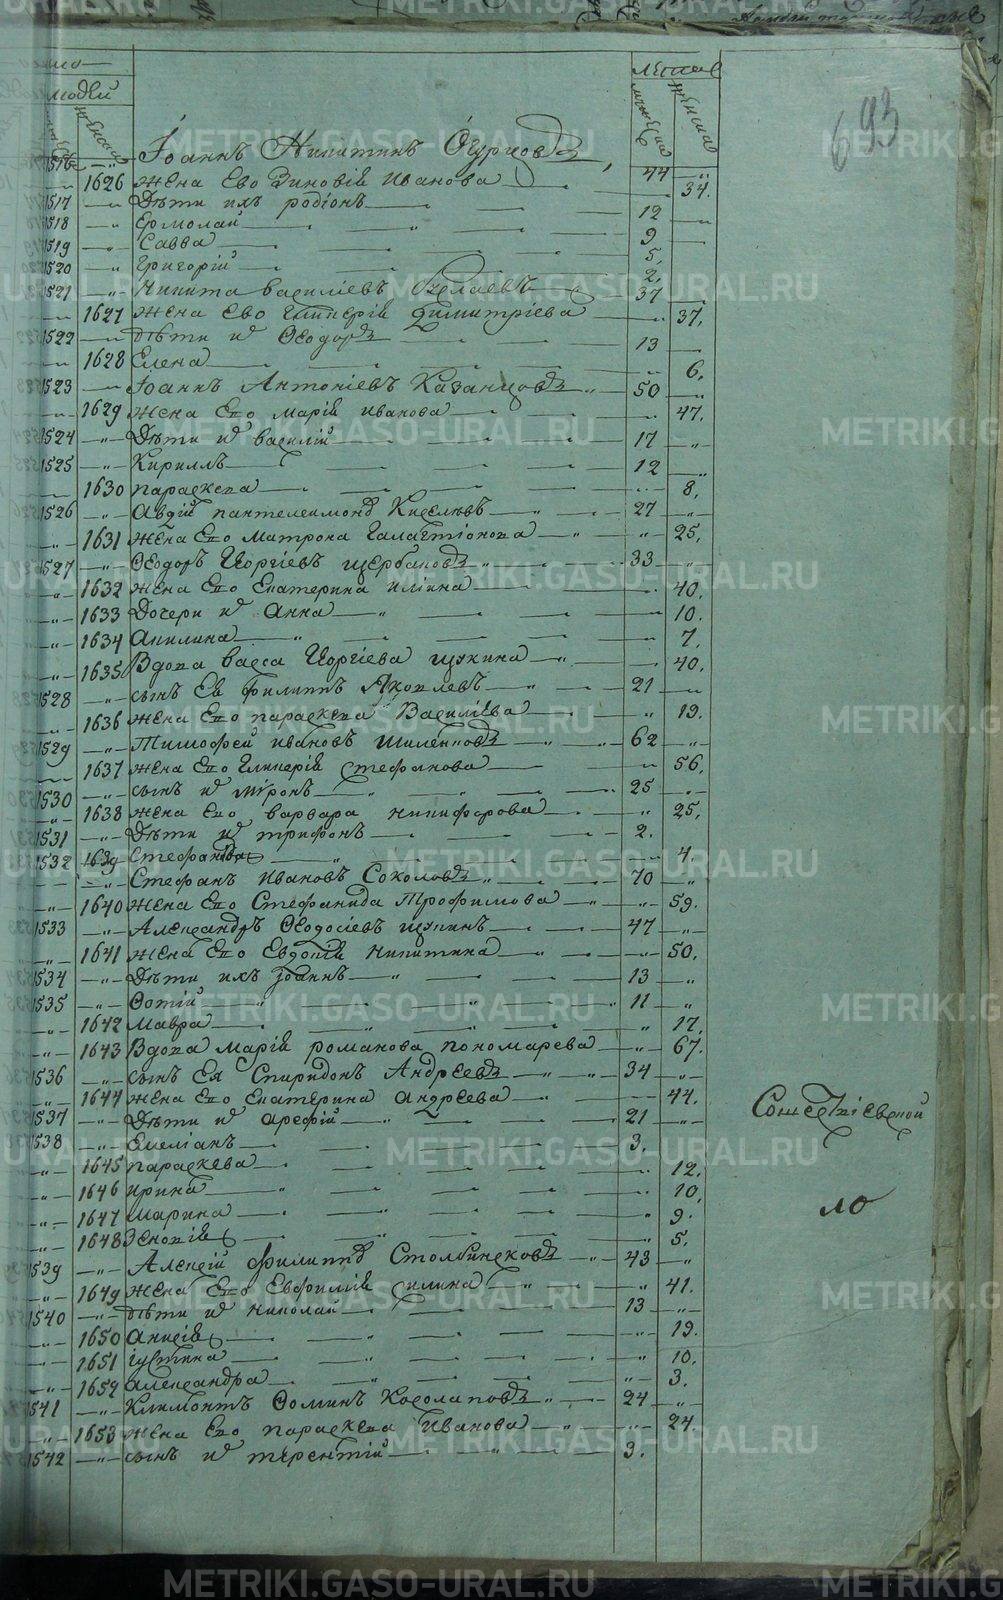 людей
лѣта
мужеска
женска
693
1516 Іоаннъ Никитинъ Огурцовъ 44
1626 жена Ево Зиновія Иванова 34.
1517 Дѣти ихъ родіонъ 12
1518 Ермолай 9
1519 Савва 5.
1520 Григорій 2.
1521 Никита василіевъ 37
1627 жена Ево Гликерія Димитріева 37.
1522 дѣти их Ѳеодоръ 13
1628 Елена 6.
1523 Іоаннъ Антоніевъ Казанцовъ 50
1629 жена Ево марія иванова 47.
1524 Дѣти их василій 17
1525 Кириллъ 12
1630 параскева 8.
1526 Авдій пантелеимоновъ Киселевъ 27
1631 жена Ево матрона Галактіонова 25.
1527 Ѳеодоръ Георгіевъ щербаковъ 33
1632 жена Ево Екатерина иліина 40.
1633 Дочери их анна 10.
1634 Акилина 7.
1635 Вдова васса Георгіева щукина 40.
1528 сынъ Ея филиппъ Яковлевъ 21
1636 жена Ево параскева Василіева 19.
1529 Тимофей ивановъ шиленковъ 62
1637 жена Ево Гликерія стефанова 56.
1530 сынъ их міронъ 25
1638 жена Ево варвара никифорова 25.
1531 Дѣти их трифонъ 2.
1532 1639 Стефанида 4.
Стефанъ Ивановъ Соколовъ 70
1640 жена Ево Стефанида Трофимова 59.
1533 Александръ Ѳеодосіевъ щукинъ 47
1641 жена Ево Евдокія Никитина 50.
1534 Дѣти ихъ Іоаннъ 13
1535 Фотій 11
1642 Мавра 17.
1643 Вдова Марія романова пономарева 67.
1536 сынъ Ея Спиридонъ Андреевъ 34
1644 жена Ево Екатерина андреева 44.
1537 Дѣти их арефій 21
1538 Емеліанъ 3.
1645 параскева 12.
1646 ирина 10.
1647 марина 9.
1648 Зеновія 5.
1539 Алексій филиппов Столбинсковъ 43
1649 жена Ево Евфимія силина 41.
1540 дѣти их николай 13
1650 анисія 19.
1651 густина 10.
1652 александра 3.
1541 Климонтъ Ѳоминъ Косолаповъ 24
1653 жена Ево параскева Иванова 24.
1542 сынъ их терентій 3.
METRIKI.GASO-URAL.RU